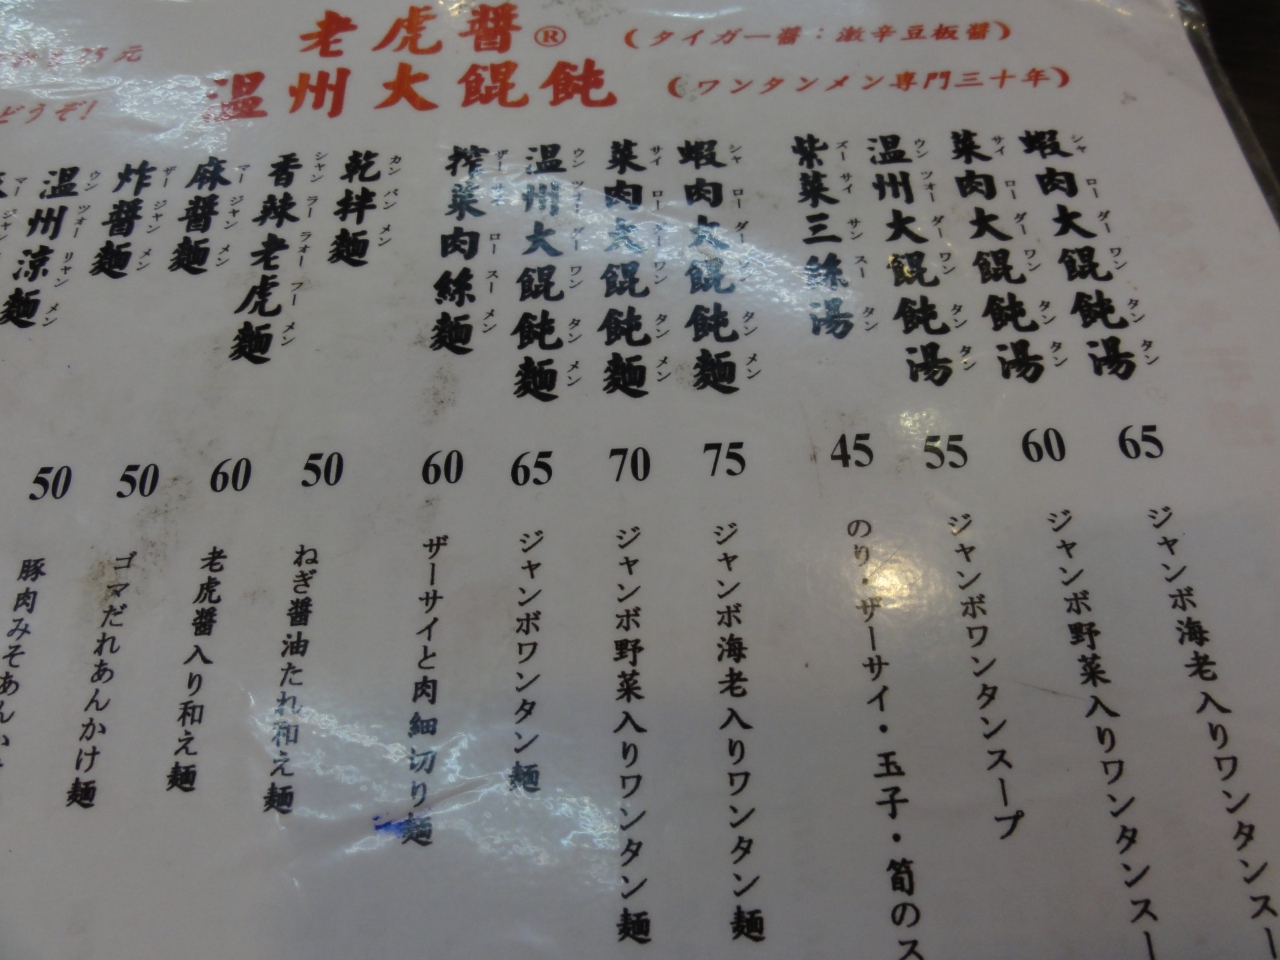 老虎醬® (タイガー醬:激辛豆板醬)
温州大餛飩 (ワンタンメン専門三十年)
元
どうぞ!
蝦肉大餛飩湯
シャローダーワンタンタン
65
ジャンボ海老入りワンタンスー
菜肉大餛飩湯
サイローダーワンタンタン
60
ジャンボ野菜入りワンタンスー
温州大餛飩湯
ウンツォーダーワンタンタン
55
ジャンボワンタンスープ
紫菜三絲湯
ズーサイサンスータン
45
のり・ザーサイ・玉子・筍のス
蝦肉大餛飩麵
シャローダーワンタンメン
75
ジャンボ海老入りワンタン麺
菜肉大餛飩麵
サイローダーワンタンメン
70
ジャンボ野菜入りワンタン麺
温州大餛飩麵
ウンツォーダーワンタンメン
65
ジャンボワンタン麺
搾菜肉絲麵
ザーサイロースーメン
60
ザーサイと肉細切り麺
乾拌麵
カンバンメン
50
ねぎ醬油たれ和え麺
香辣老虎麵
シャンラーラォーフーメン
60
老虎醬入り和え麺
麻醬麵
マージャンメン
50
ゴマだれあんかけ麺
炸醬麵
ザージャンメン
50
豚肉みそあんか
温州涼麵
ウンツォーリャンメン
マージャン